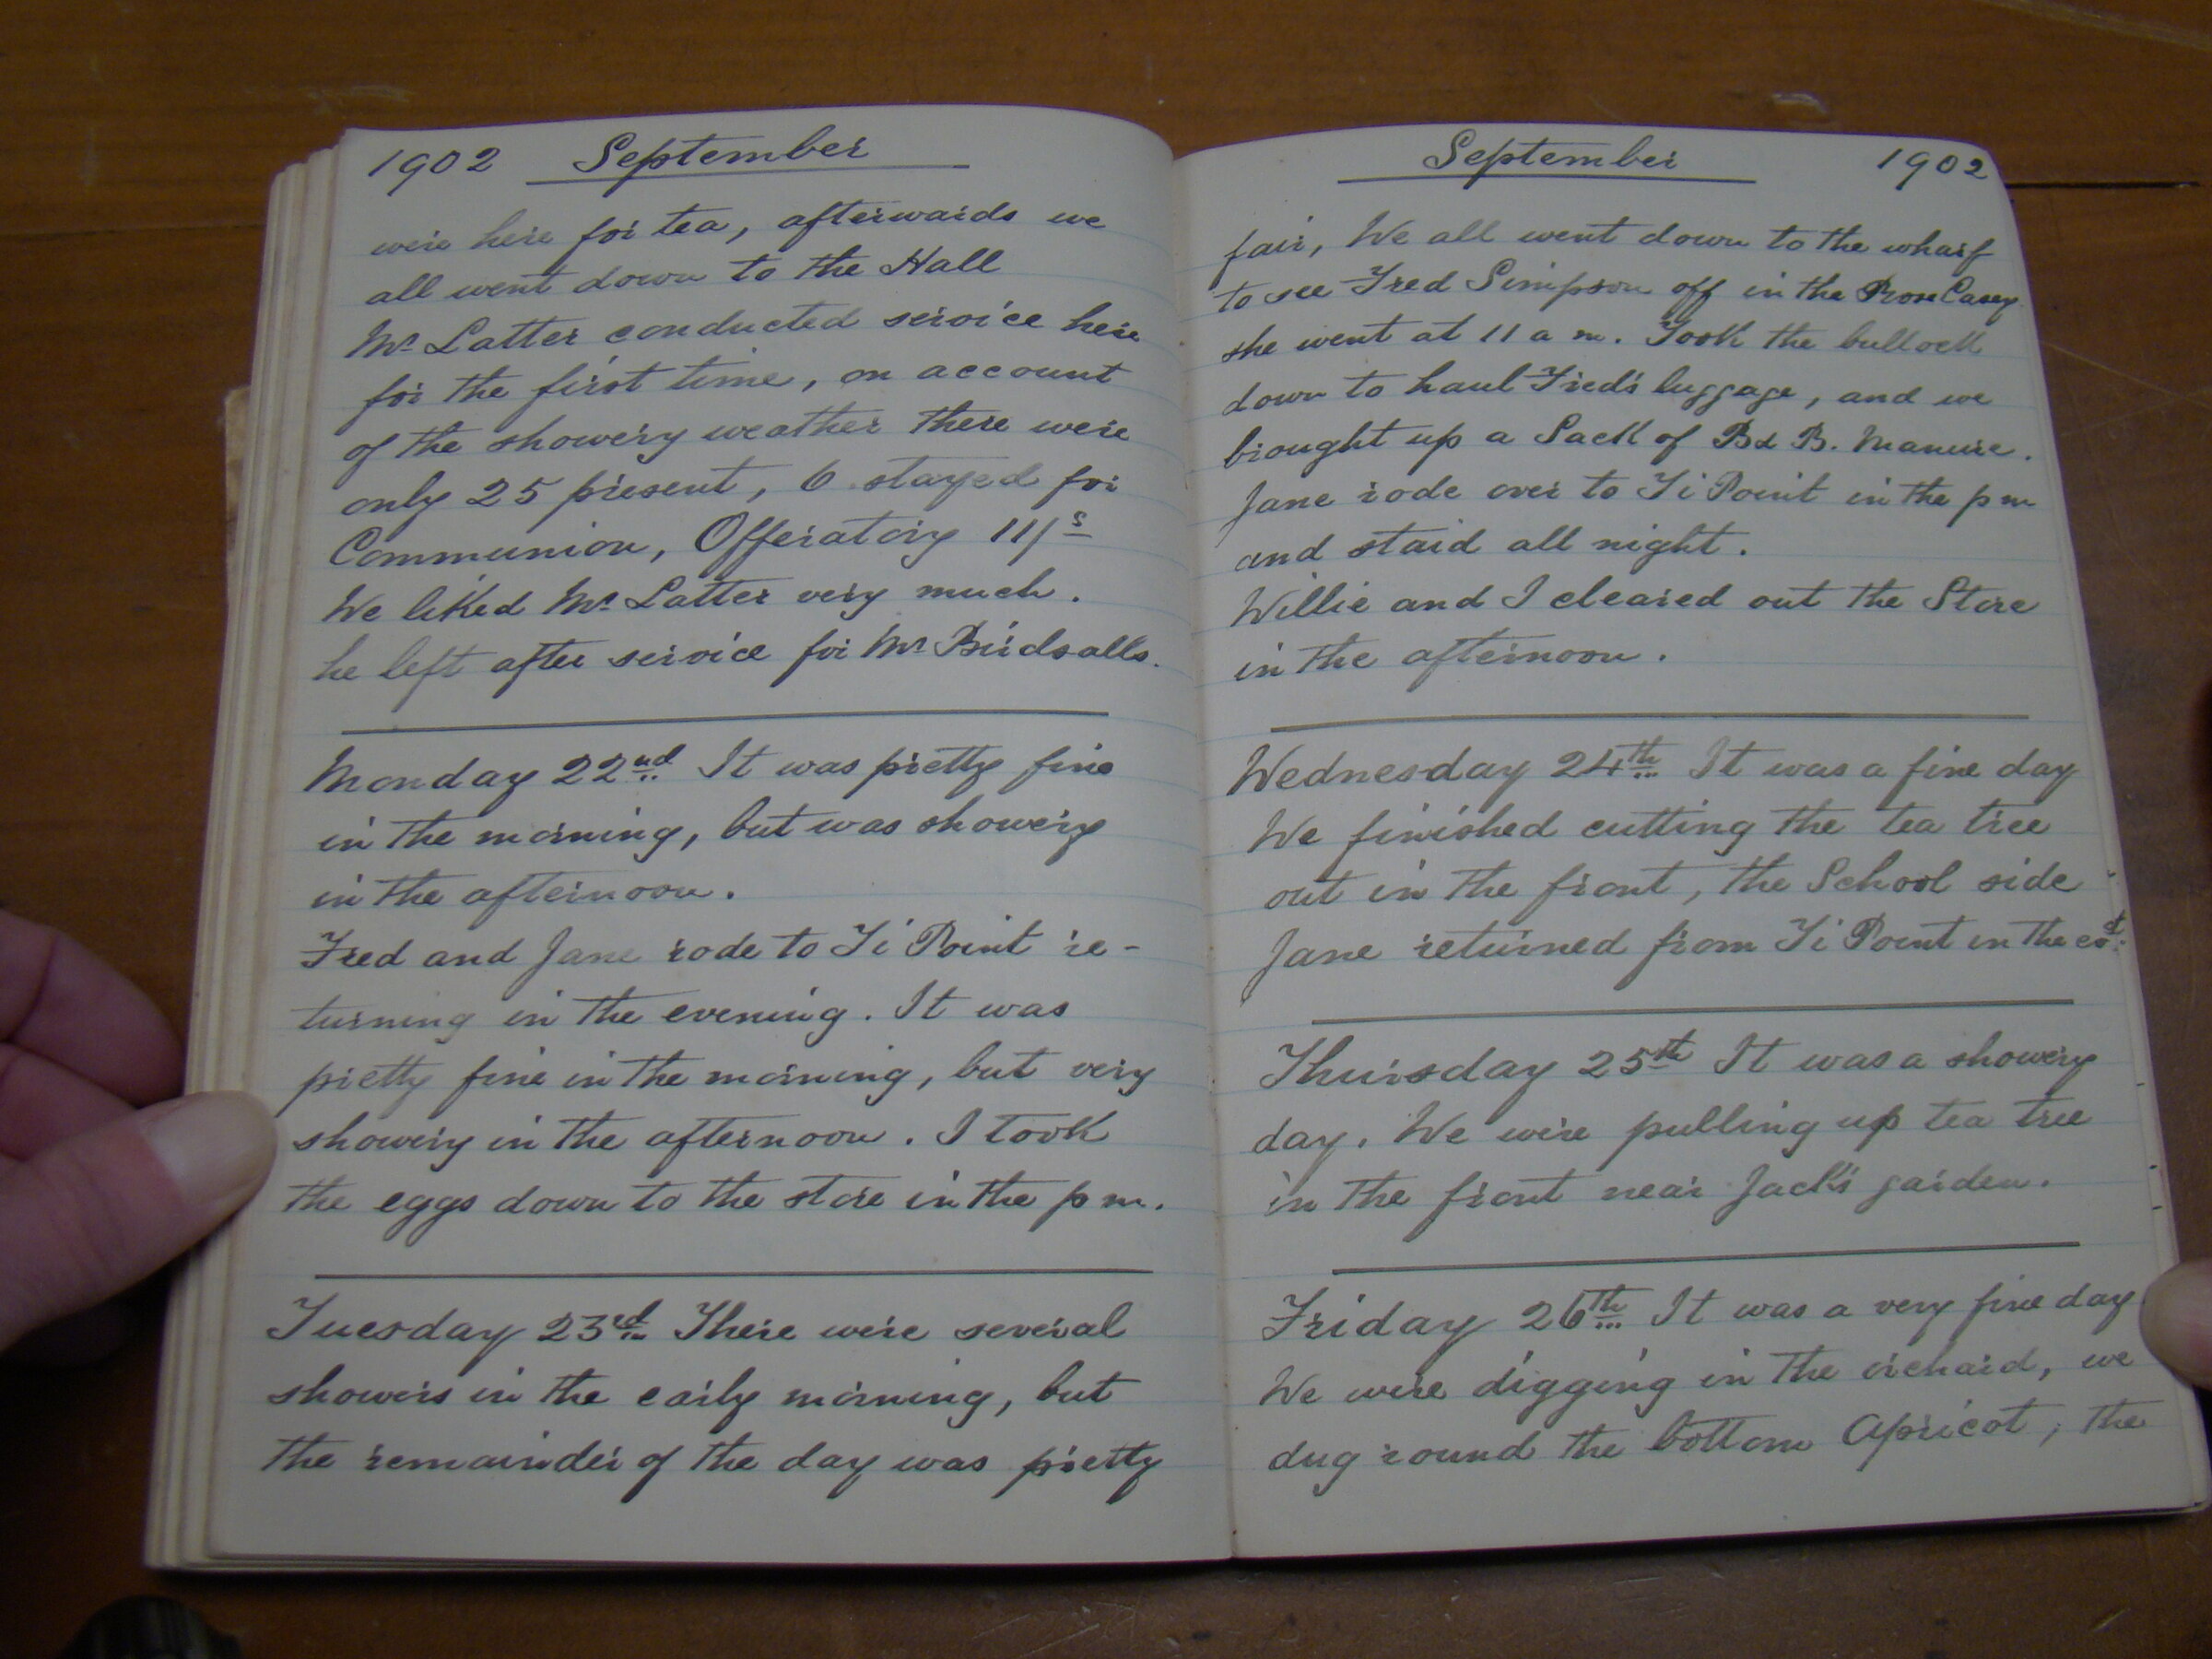 1902 September
were here for tea, afterwards we
all went down to the Hall
Mr Latter conducted service here
for the first time, on account
of the showery weather there were
only 25 present, 6 stayed for
Communion, Offeratory 11/s
We liked Mr Latter very much.
he left after service for Mr Birdsalls.
Monday 22nd It was pretty fine
in the morning, but was showery
in the afternoon.
Fred and Jane rode to Ti Point re-
turning in the evening. It was
pretty fine in the morning, but very
showery in the afternoon. I took
the eggs down to the store in the p m.
Tuesday 23rd There were several
showers in the early morning, but
the remainder of the day was pretty
September 1902
fair, We all went down to the wharf
to see Fred Simpson off in the Rose Casey
she went at 11 a m. Took the bullock
down to haul Fred's luggage, and we
brought up a Sack of B & B. Manure.
Jane rode over to Ti Point in the p m
and staid all night.
Willie and I cleared out the Store
in the afternoon.
Wednesday 24th It was a fine day
We finished cutting the tea tree
out in the front, the School side
Jane returned from Ti Point in the
Thursday 25th It was a showery
day. We were pulling up tea tree
in the front near Jack's garden.
Friday 26th It was a very fine day
We were digging in the orchard, we
dug round the bottom Apricot, the